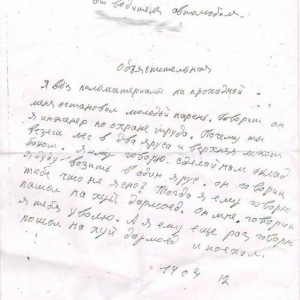 от водителя автомобиля.
Объяснительная
Я вёз пиломатериалы на проходной
меня остановил молодой парень, говорит он
я инженер по охране труда. Почему ты
везёш лес в два яруса и верхняя может
боком. Я ему говорю. сделай нам оклад
Я буду возить в один ярус. он говорит
тебе что не ясно? Тогда я ему говорю
пошол на хуй дармоед, он мне говорит
я тебя уволю. А я ему ещё раз говорю
пошол на хуй дармоед и поехал.
14 04 12